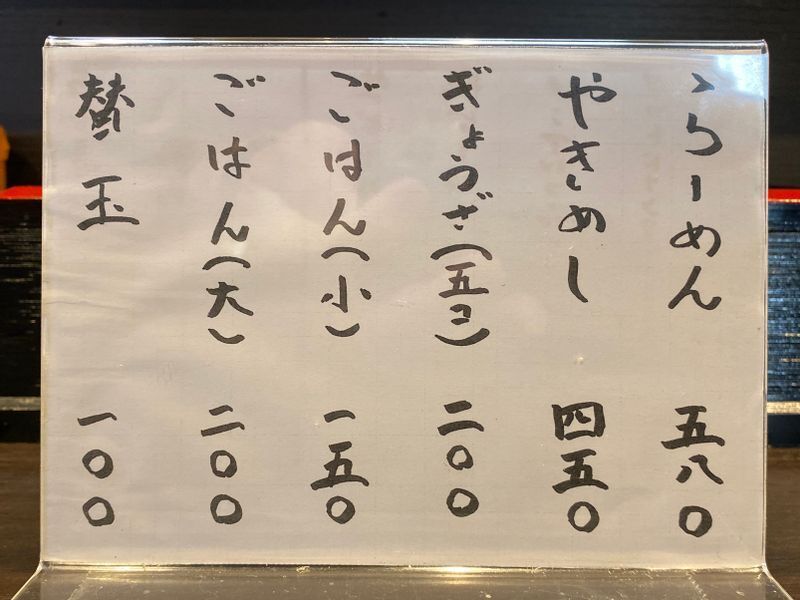 らーめん 五八〇
やきめし 四五〇
ぎょうざ(五コ) 二〇〇
ごはん(小) 一五〇
ごはん(大) 二〇〇
替玉 一〇〇